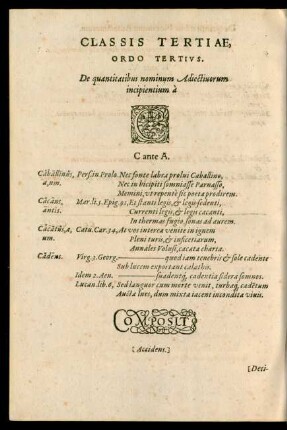 CLASSIS TERTIAE,
ORDO TERTIVS.
De quantitatibus nominum Adiectiuorum
incipientium à
C
C ante A.
Căbāllĭnŭs, Pers. in Prolo. Nec fonte labra prolui Caballino,
a, um. Nec in bicipiti somniasse Parnasso,
Memini, vt repentè sic poeta prodirem.
Căcāns, Mar. li. 3. Epig. Et stanti legis, & legis sedenti,
antis. Currenti legis, & legis cacanti,
In thermas fugio, sonas ad aurem.
Căcātŭs, a, Catu. Car. 34. At vos interea venite in ignem
um. Pleni ruris, & inficetiarum,
Annales Volusi, cacata charta.
Cădēns. Virg. 3. Georg. quod iam tenebris & sole cadente
Sub lucem exportant calathis.
Idem 2. Aen. suadentq́; cadentia sidera somnos.
Lucan. lib. Sed languor cum morte venit, turbaq́; cadentum
Aucta lues, dum mixta iacent incondita viuis.
COMPOSIT
[Accidens.]
[Deci-